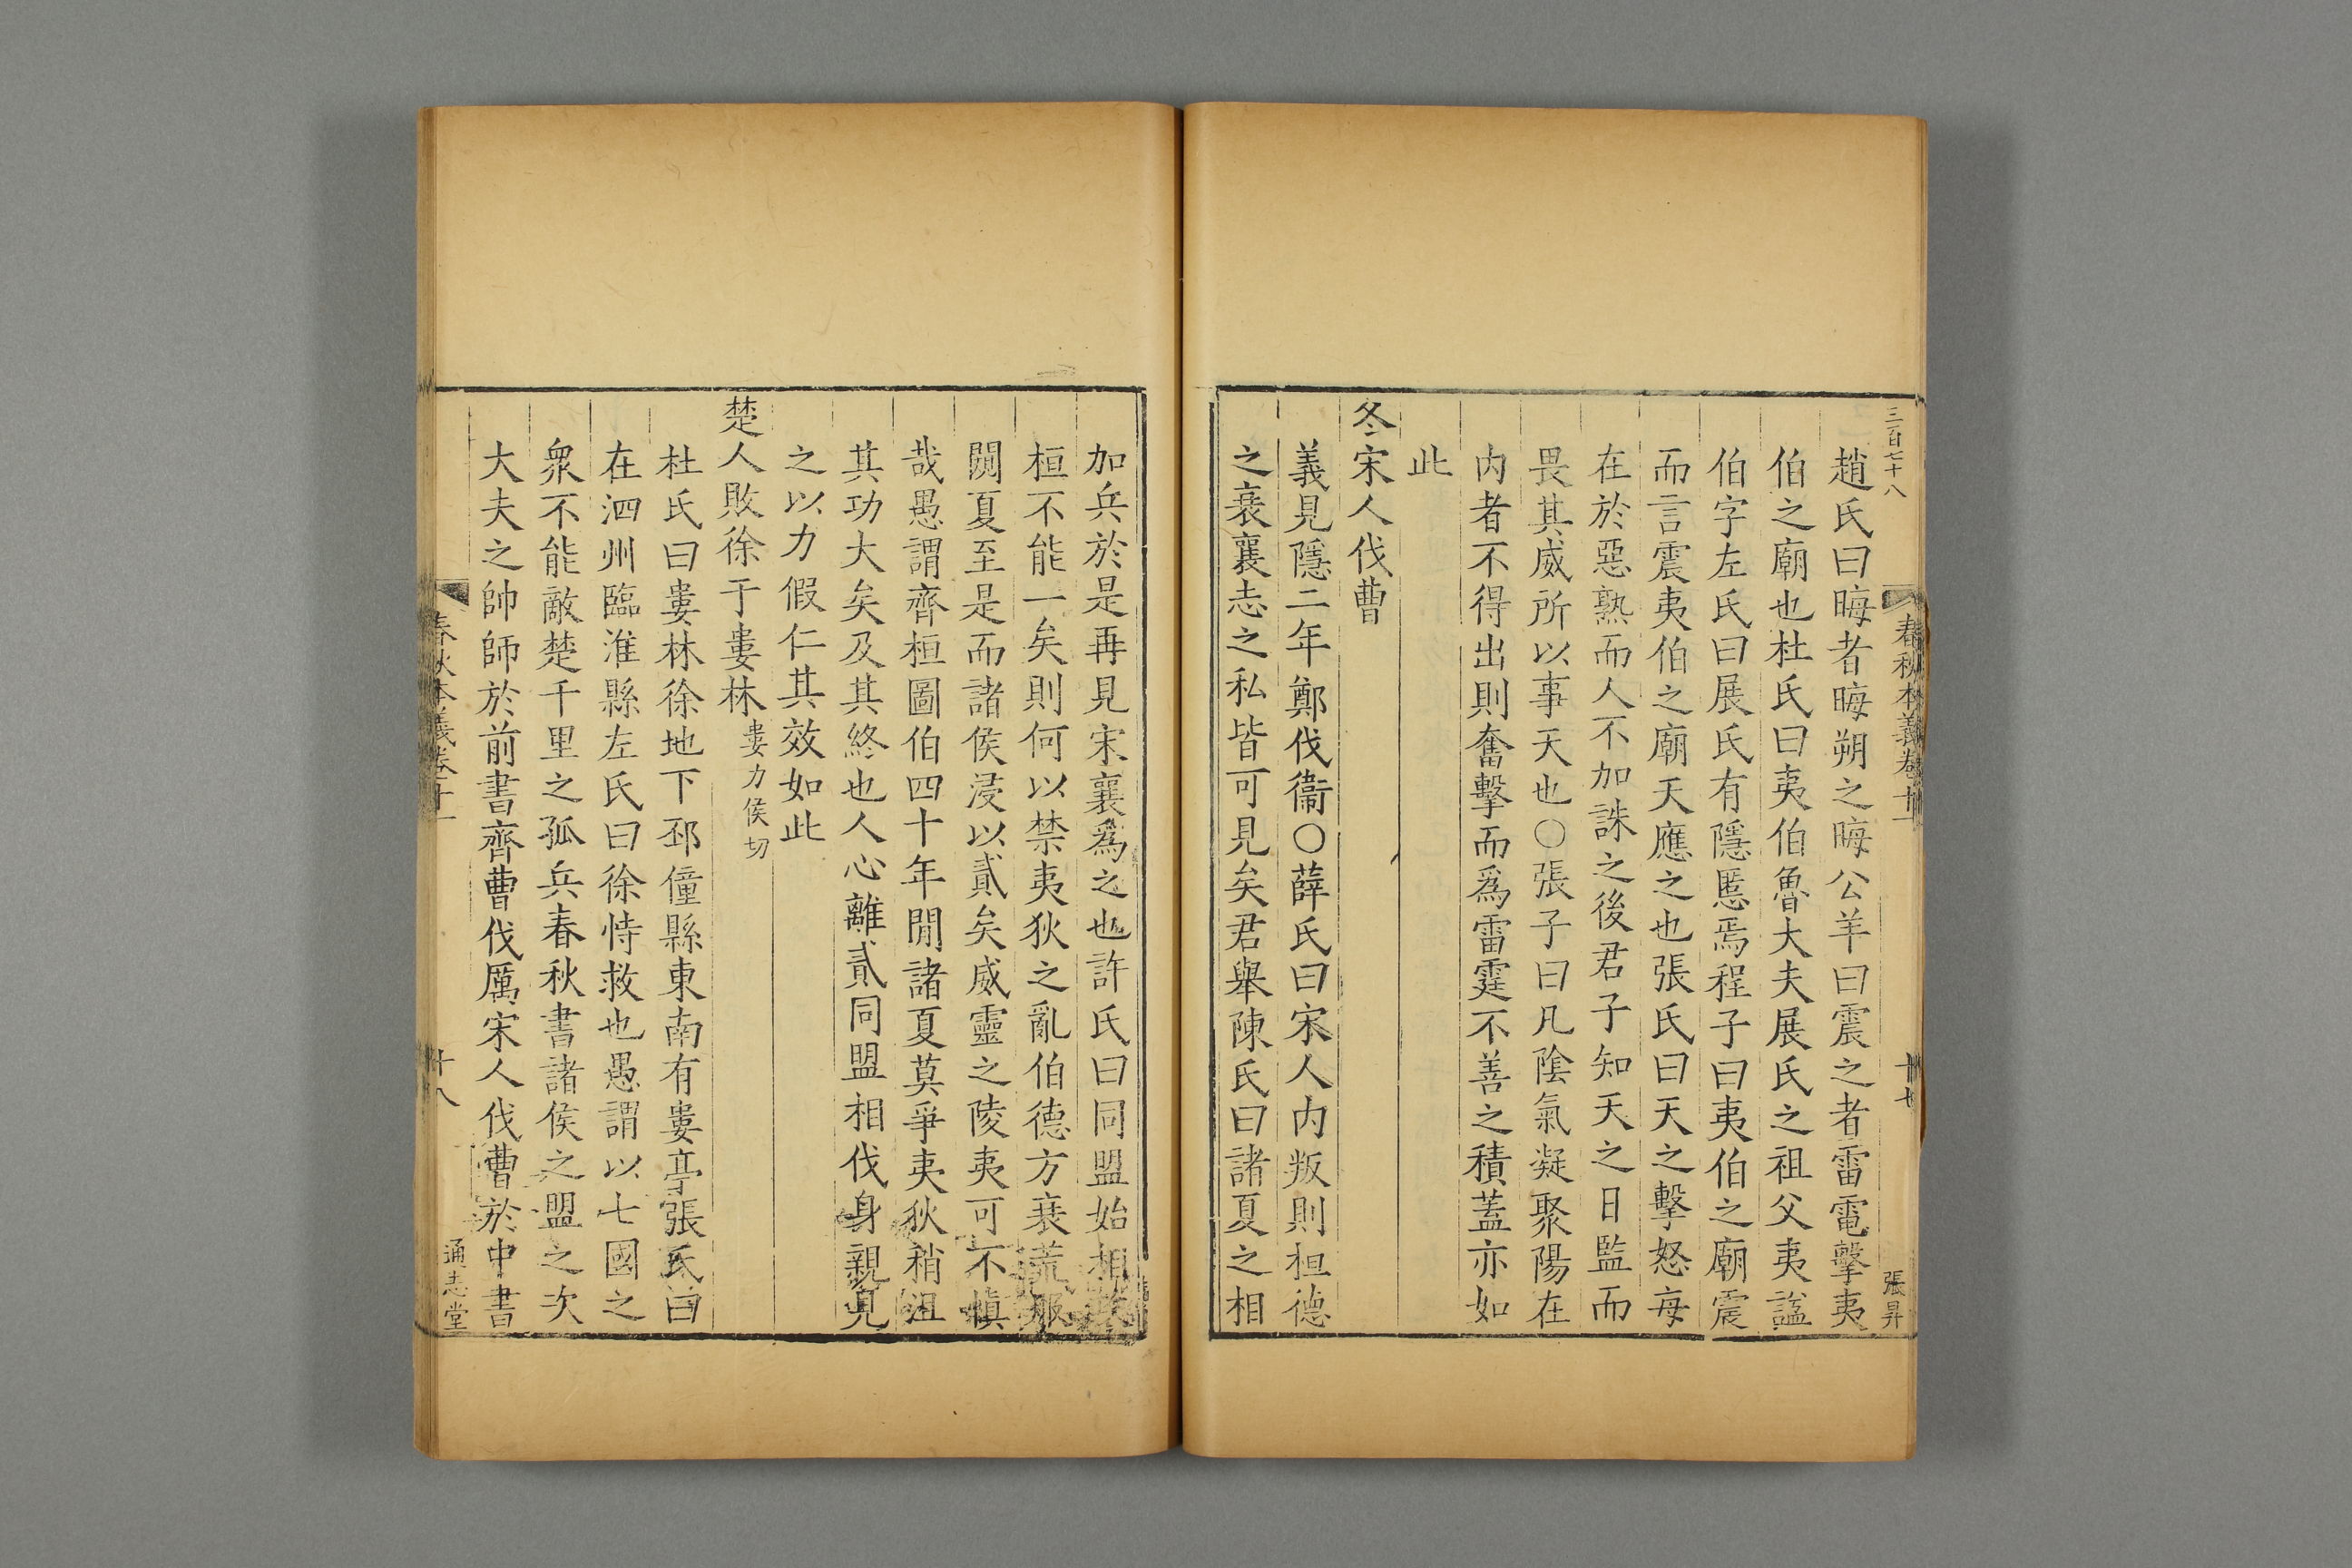 三百七十八
春秋本義卷十一
十七
張昇
趙氏曰晦者晦朔之晦公羊曰震之者雷電擊夷
伯之廟也杜氏曰夷伯魯大夫展氏之祖父夷謚
伯字左氏曰展氏有隱慝焉程子曰夷伯之廟震
而言震夷伯之廟天應之也張氏曰天之擊怒每
在於惡熟而人不加誅之後君子知天之日監而
畏其威所以事天也○張子曰凡陰氣凝聚陽在
内者不得出則奮擊而爲雷霆不善之積蓋亦如
此
冬宋人伐曹
義見隱二年鄭伐衞○薛氏曰宋人内叛則桓德
之衰襄志之私皆可見矣君舉陳氏曰諸夏之相
加兵於是再見宋襄爲之也許氏曰同盟始相
桓不能一矣則何以禁夷狄之亂伯德方衰荒服
闕夏至是而諸侯浸以貳矣威靈之陵夷可不慎
哉愚謂齊桓圖伯四十年閒諸夏莫爭夷狄稍沮
其功大矣及其終也人心離貳同盟相伐身親見
之以力假仁其效如此
楚人敗徐于婁林婁力侯切
杜氏曰婁林徐地下邳僮縣東南有婁亭張氏曰
在泗州臨淮縣左氏曰徐恃救也愚謂以七國之
衆不能敵楚千里之孤兵春秋書諸侯之盟之次
大夫之帥師於前書齊曹伐厲宋人伐曹於中書
春秋本義卷十一
十八
通志堂